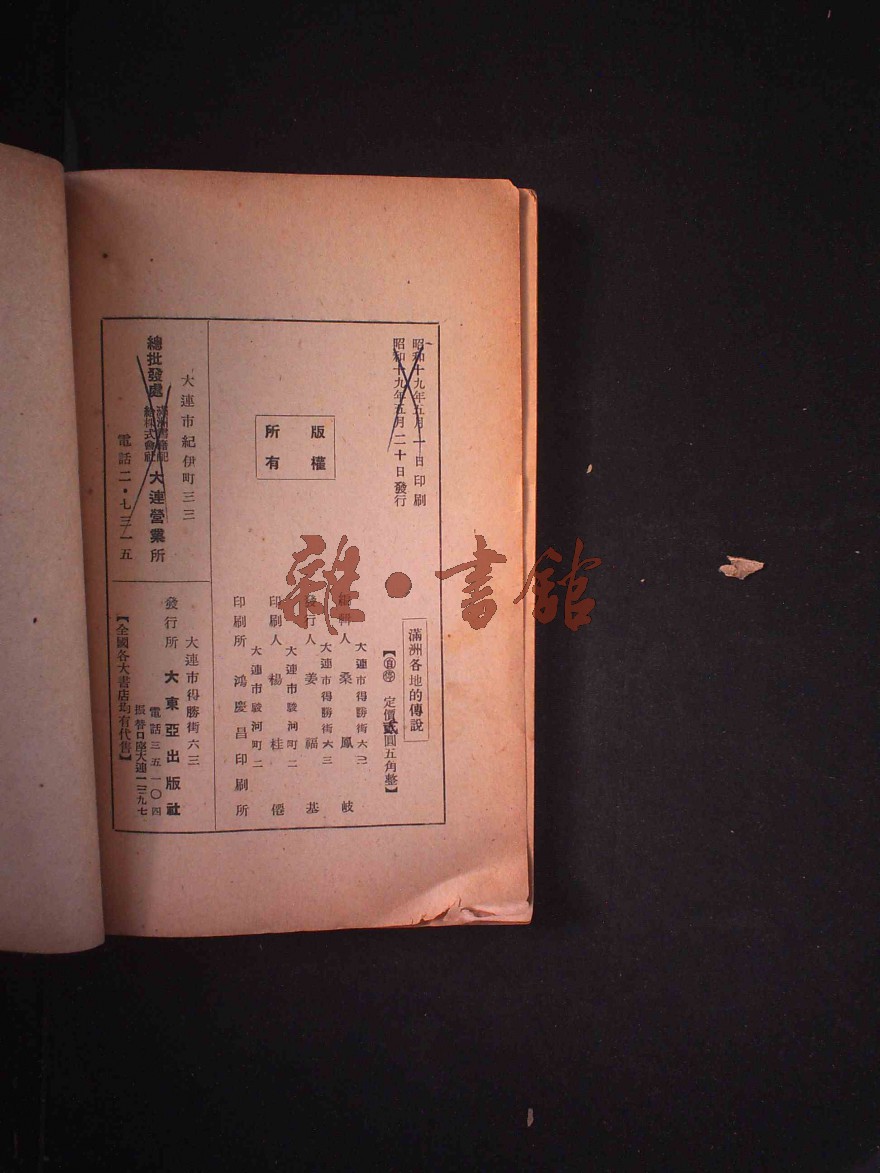 昭和十九年五月一日印刷
昭和十九年五月二十日發行
版權
所有
滿洲各地的傳說
定價貳圓五角整】
大連市得勝街六三
編輯人 桑鳳岐
大連市得勝街六三
發行人 姜福基
大連市駿河町二
印刷人 楊桂僊
大連市駿河町二
印刷所 鴻慶昌印刷所
大連市紀伊町三三
總批發處 滿洲書籍配給株式會社 大連營業所
電話二・七三一五
大連市得勝街六三
發行所 大東亞出版社
電話三五一〇四
振替口座大連一三九七
【全國各大書店均有代售】
雜・書館